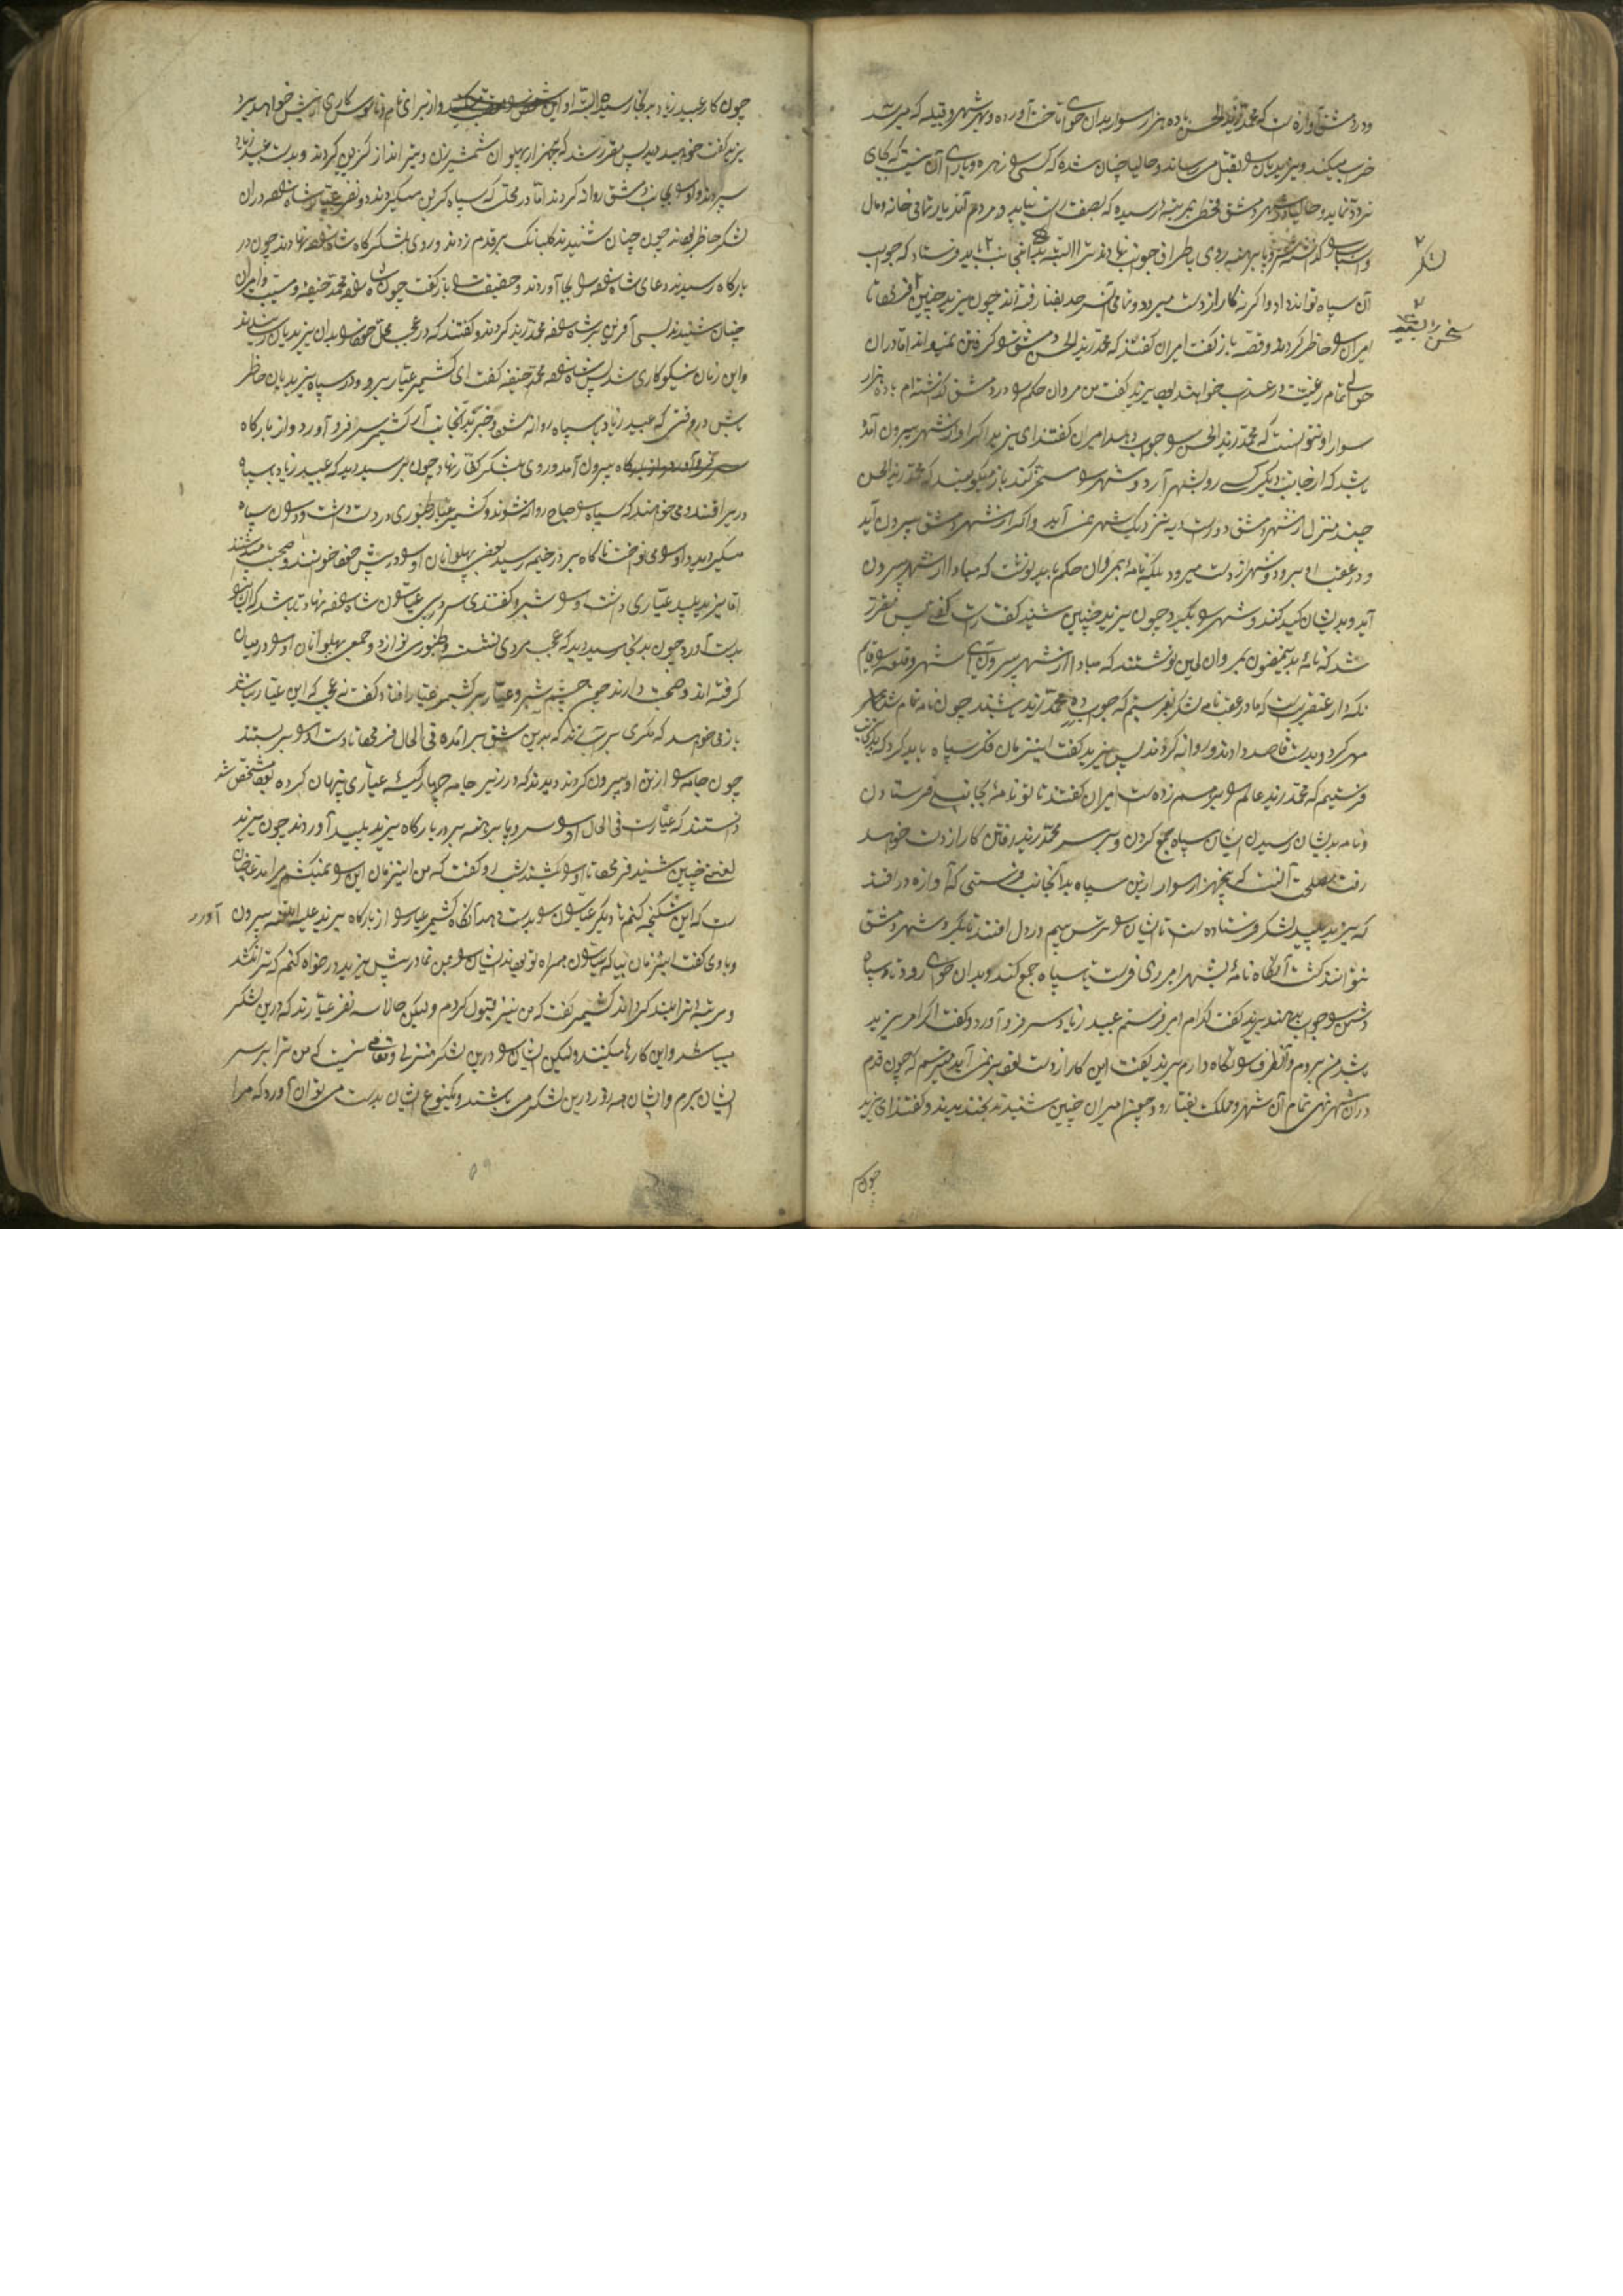 ودر دمشق آوازه است که محمد زید الحسن با ده هزار سوار بدان حوالی تاخت آورده و بهر شهر و قبیله که میرسد
خراب میکند و یزیدیان را بقتل می رساند و حالیا چنان شده که کسی را زهره و یارای آن نیست که بجای
تردد نماید و حالیا در شهر دمشق قحطی بمرتبه رسیده که بصفت راست نیاید و مردم آن دیار تمامی خانه و مال
و اسباب را گذاشته سر و پا برهنه روی باطراف جوانب نهادند البته بدانجانب باید فرستاد که جواب
آن سپاه تواند داد و اگر نه کار از دست میرود و تمامی آن سرحد بفنا رفته اند چون یزید چنین فرمود تا
امیران را حاظر کردند و قصه باز گفت امیران گفتند که محمد زید الحسن دمشق را گرفتن نمیتواند اما در آن
حوالی تمام رعیت در عذاب خواهند بود یزید گفت من مروان حکم را در دمشق گذاشته ام با ده هزار
سوار او نتوانست که محمد زید الحسن را جواب دهد امیران گفتند ای یزید اگر او از شهر بیرون آمده
باشد که از جانب دیگر کسی رو بشهر آرد و شهر را مسخر کند باز میگویند که محمد زید الحسن
چند منزل از شهر دمشق دور است و به نزدیک شهر نمی آید و اگر از شهر دمشق بیرون آید
و در عقب او برود شهر از دست میرود بلکه نامه بمروان حکم باید نوشت که مبادا از شهر بیرون
آید و بدیشان کید کنند و شهر را بگیرد چون یزید چنین شنید گفت راست گفتی پس مقرر
شد که نامه بدین مضمون بمروان لعین نوشتند که مبادا از شهر بیرون آی شهر و قلعه را قایم
نگه دار عنقریب است که ما در عقب نامه لشکر بفرستیم که جواب ده محمد زید باشند چون نامه تمام شد
مهر کرد و بدست قاصد دادند و روانه کردند پس یزید گفت این زمان فکر سپاه باید کرد که بدانجانب
فرستیم که محمد زید عالم را بر هم زده است امیران گفتند تا تو نامه بجانب فرستادن
و نامه بدیشان رسیدن ایشان سپاه جمع کردن و بر سر محمد زید رفتن کار از دست خواهد
رفت مصلحت آنست که پنجهزار سوار ازین سپاه بدانجانب فرستی که آوازه در افتد
که یزید پلید لشکر فرستاده است تا ایشان را ترس بیم در دل افتد تا بگرد شهر دمشق
نتوانند گشت آنگاه نامه بشهر امیری فرست تا سپاه جمع کند و بدان حوالی رود تا سپاه
دشمن را جواب بدهند یزید گفت کدام امیر فرستم عبید زیاد سر فرو آورد و گفت اگر امر یزید
باشد من بروم و آنطرف را نگاه دارم یزید گفت این کار از دست تو بر نمی آید میترسم که چون قدم
در آن شهر نهی تمام آن شهر و ملک بفنا رود چون امیران چنین شنیدند بخندیدند و گفتند ای یزید
لشکر
چون کار
چون کار عبید زیاد بدینجا رسیده البته او از برای نام و ناموس کاری از پیش خواهد برد
یزید گفت خواهید دید پس مقرر شد که پنجهزار پهلوان شمشیر زن و تیر انداز گزین کردند و بدست عبید زیاد
سپردند و او را بجانب دمشق روانه کردند اما در محلی که سپاه گزین میکردند دو نفر عیار شاه در آن
لشکر حاظر بودند چون چنان شنیدند گلبانگ بر قدم زدند و روی بلشکرگاه شاه نهادند چون در
بارگاه رسیدند دعای شاه را بجا آوردند و حقیقت را باز گفت چون شاه محمد حنیفه و مسیب و امیران
چنان شنیدند بسی آفرین بر شاه محمد زید کردند و گفتند که در عجب محل خود را بدان یزیدیان رسانید
و این زمان نیکو کاری شد پس شاه محمد حنیفه گفت ای کشمیر عیار برو و در سپاه یزیدیان حاظر
باش در وقتی که عبید زیاد با سپاه روانه شود خبر بدینجانب آر کشمیر سر فرو آورد و از بارگاه
بیرون آمد و روی بلشکر کفار نهاد چون برسید دید که عبید زیاد سپاه
در یراقند و می خواهند که سپاه را صباح روانه شوند و کشمیر عیار طنبوری در دست داشت و درون سپاه
میگردید و او را می نواخت ناگاه بر در خیمه رسید بعضی پهلوانان او را در پیش خود خواندند و صحبت میداشتند
اما یزید پلید عیاری داشت و او را شبرو گفتندی سر در پی عیاران شاه نهاده تا باشد که ایشان را
بدست آورد چون بدانجا رسید دید که عجب مردی نشسته و طنبوری نوازد و جمعی پهلوانان او را در میان
گرفته اند و صحبت دارند چون چشم شبرو عیار بر کشمیر عیار افتاد گفت نه عجبی که این عیار باشد
باز می خواهد که مکری بر سازد که بدین مشق بر آمده فی الحال فرمود تا دست او را بر بستند
چون جامه را از تن او بیرون کردند دیدند که در زیر جامه چهار گیسه عیاری پنهان کرده بود مشخص شد
دانستند که عیار است فی الحال او را سر و پا برهنه بر در بارگاه یزید پلید آوردند چون یزید
لعین چنین شنید فرمود تا او را بکشند شبرو گفت که من این زمان این را نمیکشم مراد من چنان
است که این شکنجه کنم تا دیگر عیاران را بدست دهد آنگاه کشمیر عیار را از بارگاه یزید علیه اللعنه بیرون آورد
و با وی گفت این زمان بیا که عیاران همراه تو بودند ایشان را بمن نما در پیش یزید در خواه کنم که ترا نکشد
و مرتبه ترا بلند گرداند کشمیر گفت که من نیز قبول کردم و لیکن حالا سه نفر عیارند که درین لشکر
میباشند و این کارها میکنند و لیکن ایشان را درین لشکر منزلی و مقامی نیست که من ترا بر سر
ایشان برم و ایشان همه روز درین لشکر می باشند و بیکنوع ایشان بدست می توان آورد که مرا